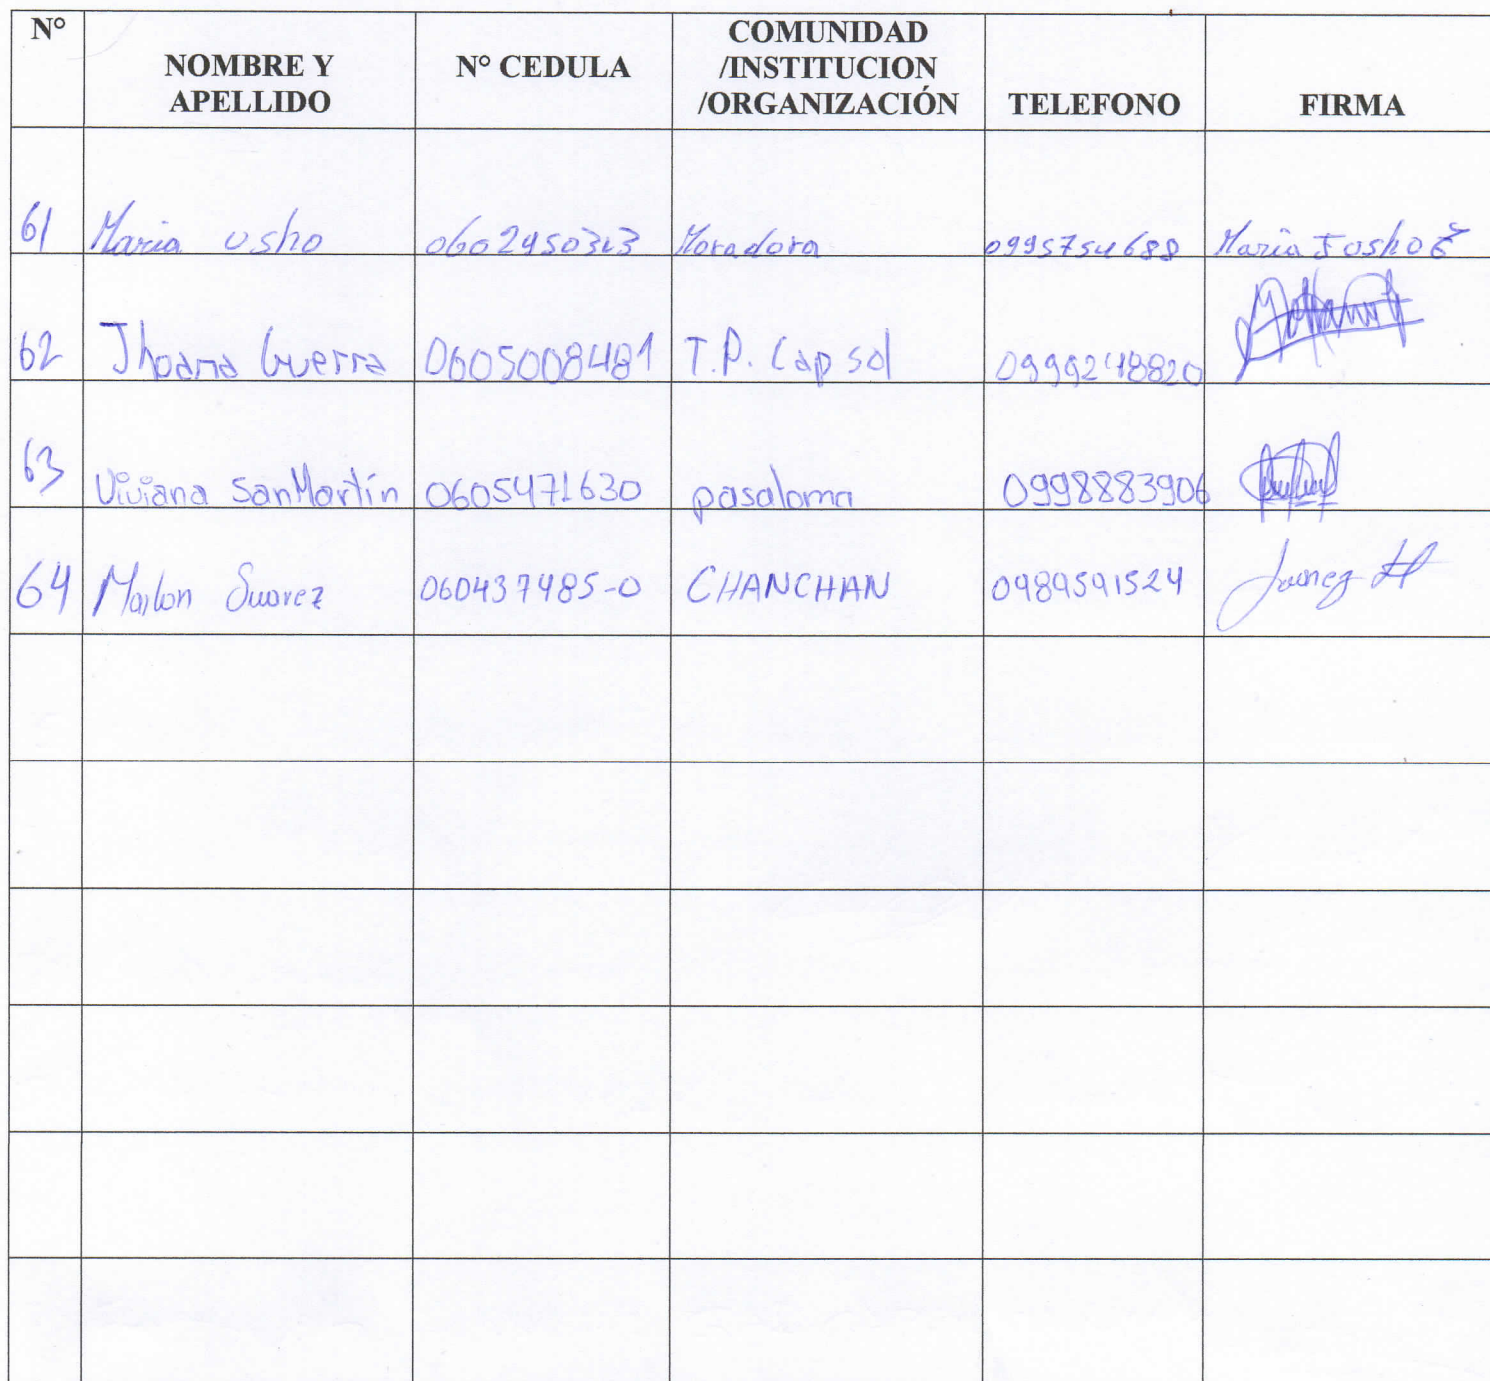 N° NOMBRE Y APELLIDO N° CEDULA COMUNIDAD /INSTITUCION /ORGANIZACIÓN TELEFONO FIRMA
61 Maria usho Moradora 0995754688 Maria J usho
62 Jhoana Guerra 0605008481 T.P. Cap sol 0999248820
63 Viviana SanMartín 0605471630 pasaloma 0998883906
64 Marlon Suarez 060437485-0 CHANCHAN 0989591524